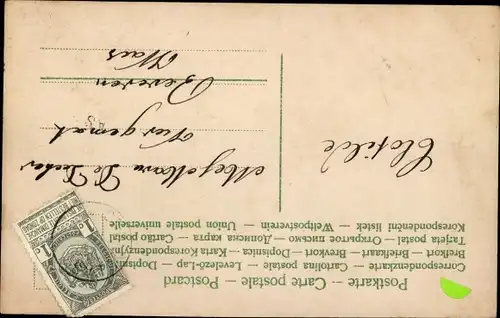 Postkarte — Carte postale — Postcard
Correspondenzkarte — Cartolina postale — Levelező-Lap — Dopisnice
Brefkort — Briefkaart — Brevkort — Dopisnica — Karta Korespondencyjna
Tarjeta postal — Открытое письмо — Дописна карта — Cartão postal
Korespondenční listek — Weltpostverein — Union postale universelle
Clotilde
Mejufvrouw De Decker
Beveren
Waes
1c 1c